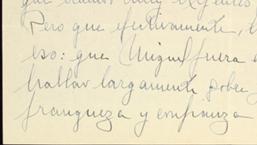 que
Pero que efectivamente,
eso: que Miguel fuera
hablar largamente sobre
franqueza y confianza